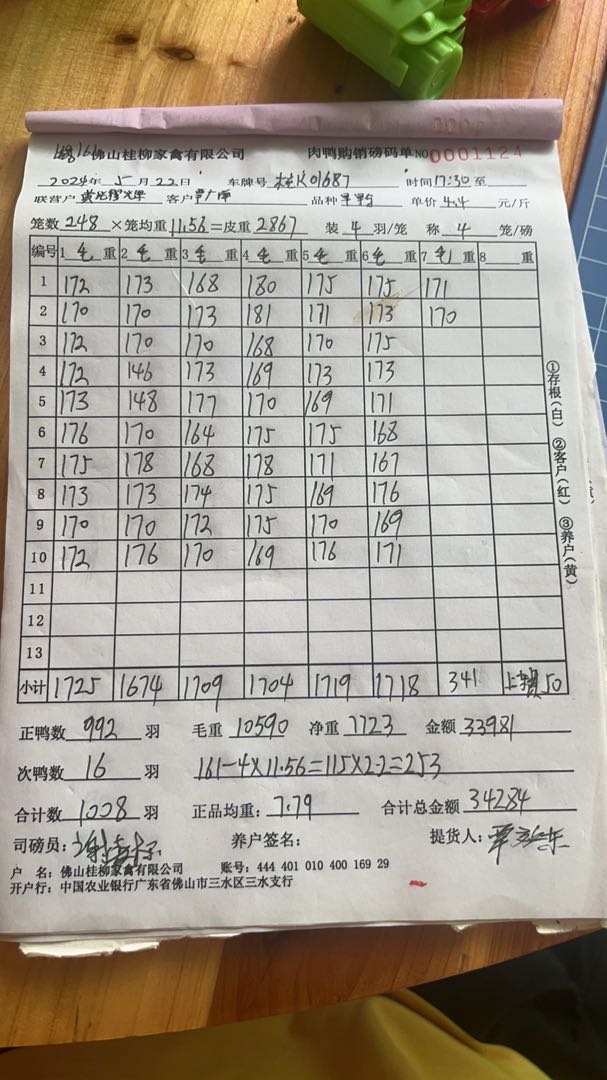 佛山桂柳家禽有限公司 肉鸭购销磅码单 NO 0001124
2024年 5月 22日 车牌号 K01687 时间 17:30 至
联营户 客户 品种 单价 4.4 元/斤
笼数 248 ×笼均重 11.56 =皮重 2867 装 4 羽/笼 称 4 笼/磅
编号 1 毛 重 2 毛 重 3 毛 重 4 毛 重 5 毛 重 6 毛 重 7 毛 重 8 重
1 172 173 168 180 175 175 171
2 170 170 173 181 171 173 170
3 172 170 170 168 170 175
4 172 146 173 169 173 173
5 173 148 177 170 169 171
6 176 170 164 175 175 168
7 175 178 168 178 171 167
8 173 173 174 175 169 176
9 170 170 172 175 170 169
10 172 176 170 169 176 171
11
12
13
小计 1725 1674 1709 1704 1719 1718 341 50
正鸭数 992 羽 毛重 10590 净重 7723 金额 33981
次鸭数 16 羽 161-4×11.56=115×2.2=253
合计数 1008 羽 正品均重: 7.79 合计总金额 34284
司磅员: 养户签名: 提货人:
户 名: 佛山桂柳家禽有限公司 账号: 444 401 010 400 169 29
开户行: 中国农业银行广东省佛山市三水区三水支行
①存根(白) ②客户(红) ③养户(黄)